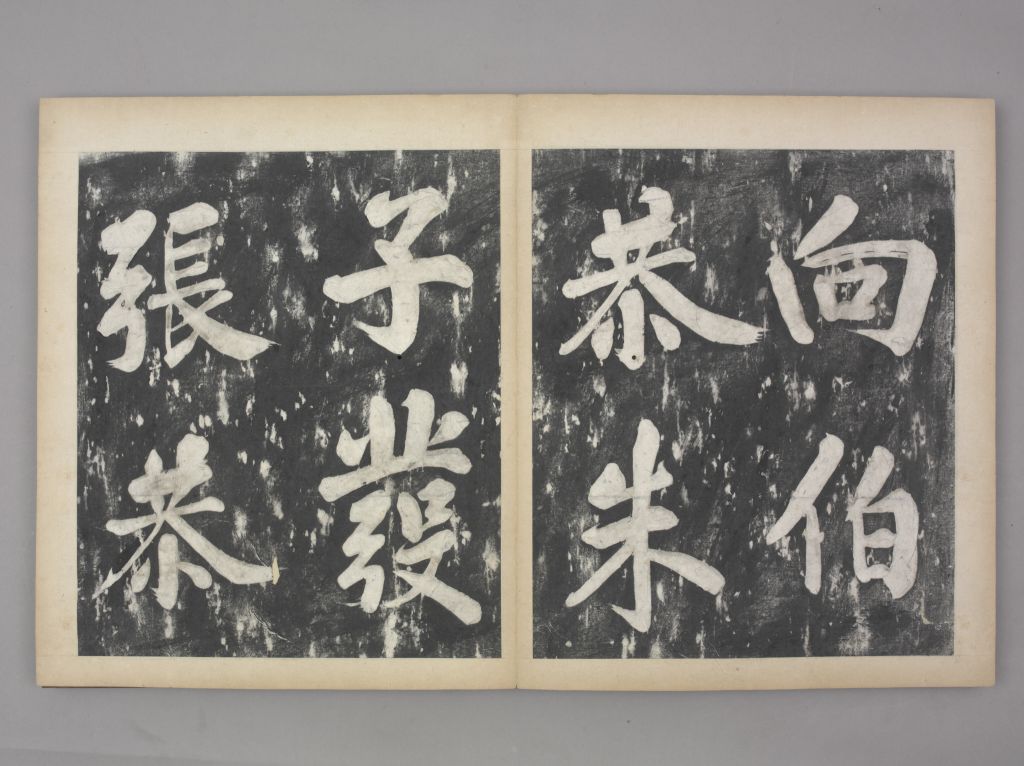 向伯
恭朱
子發
張恭